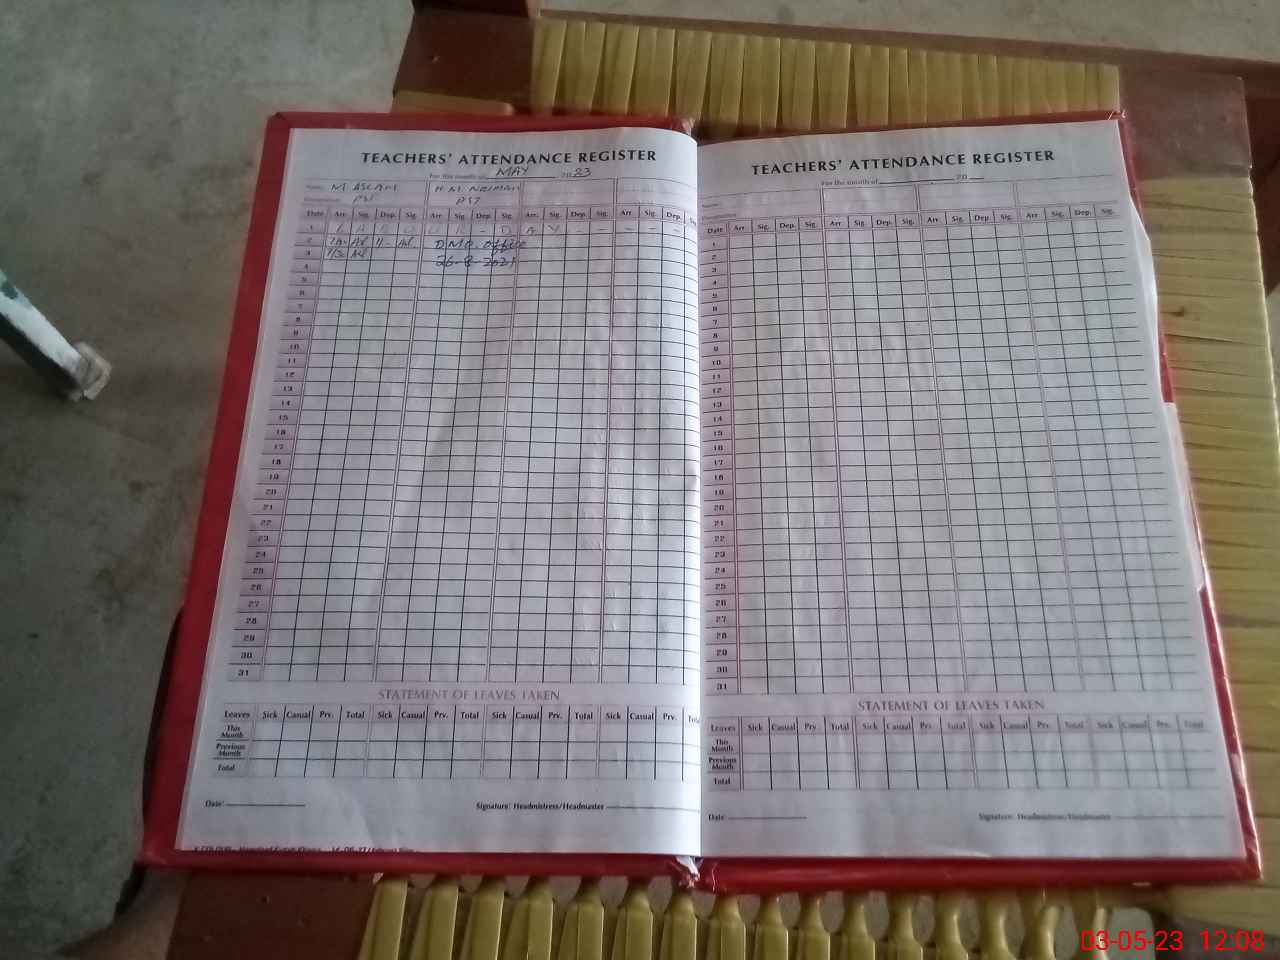 TEACHERS' ATTENDANCE REGISTER
For the month of MAY 2023
Name: M ASLAM H.M. NAIMAN
PST PST
Date Arr. Sig. Dep. Sig. Arr. Sig. Dep. Sig. Arr. Sig. Dep. Sig. Arr Sig. Dep. Sig.
1 L A B O U R - D A Y - - - - - -
2 D.M.O. office
3 26-8-2021
4
5
6
7
8
9
10
11
12
13
14
15
16
17
18
19
20
21
22
23
24
25
26
27
28
29
30
31
STATEMENT OF LEAVES TAKEN
Leaves Sick Casual Prv. Total Sick Casual Prv. Total Sick Casual Prv. Total Sick Casual Prv. Total
This Month
Previous Month
Total
Date: Signature: Headmistress/Headmaster
TEACHERS' ATTENDANCE REGISTER
For the month of 20
Name:
Date Arr Sig. Dep. Sig. Arr Sig. Dep. Sig. Arr Sig. Dep. Sig. Arr Sig. Dep. Sig.
1
2
3
4
5
6
7
8
9
10
11
12
13
14
15
16
17
18
19
20
21
22
23
24
25
26
27
28
29
30
31
STATEMENT OF LEAVES TAKEN
Leaves Sick Casual Prv. Total Sick Casual Prv. Total Sick Casual Prv. Total Sick Casual Prv. Total
This Month
Previous Month
Total
Date Signature: Headmistress/Headmaster
03-05-23 12:08